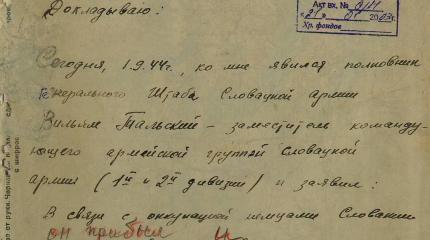 Докладываю:
Акт вх. №
Хр. фондов
Сегодня, 1.9.44г., ко мне явился полковник
Генерального Штаба Словацкой армии
Вильям Тальский – заместитель команду-
ющего армейской группой Словацкой
армии (1й и 2й дивизии) и заявил:
В связи с оккупацией немцами Словакии
он прибыл